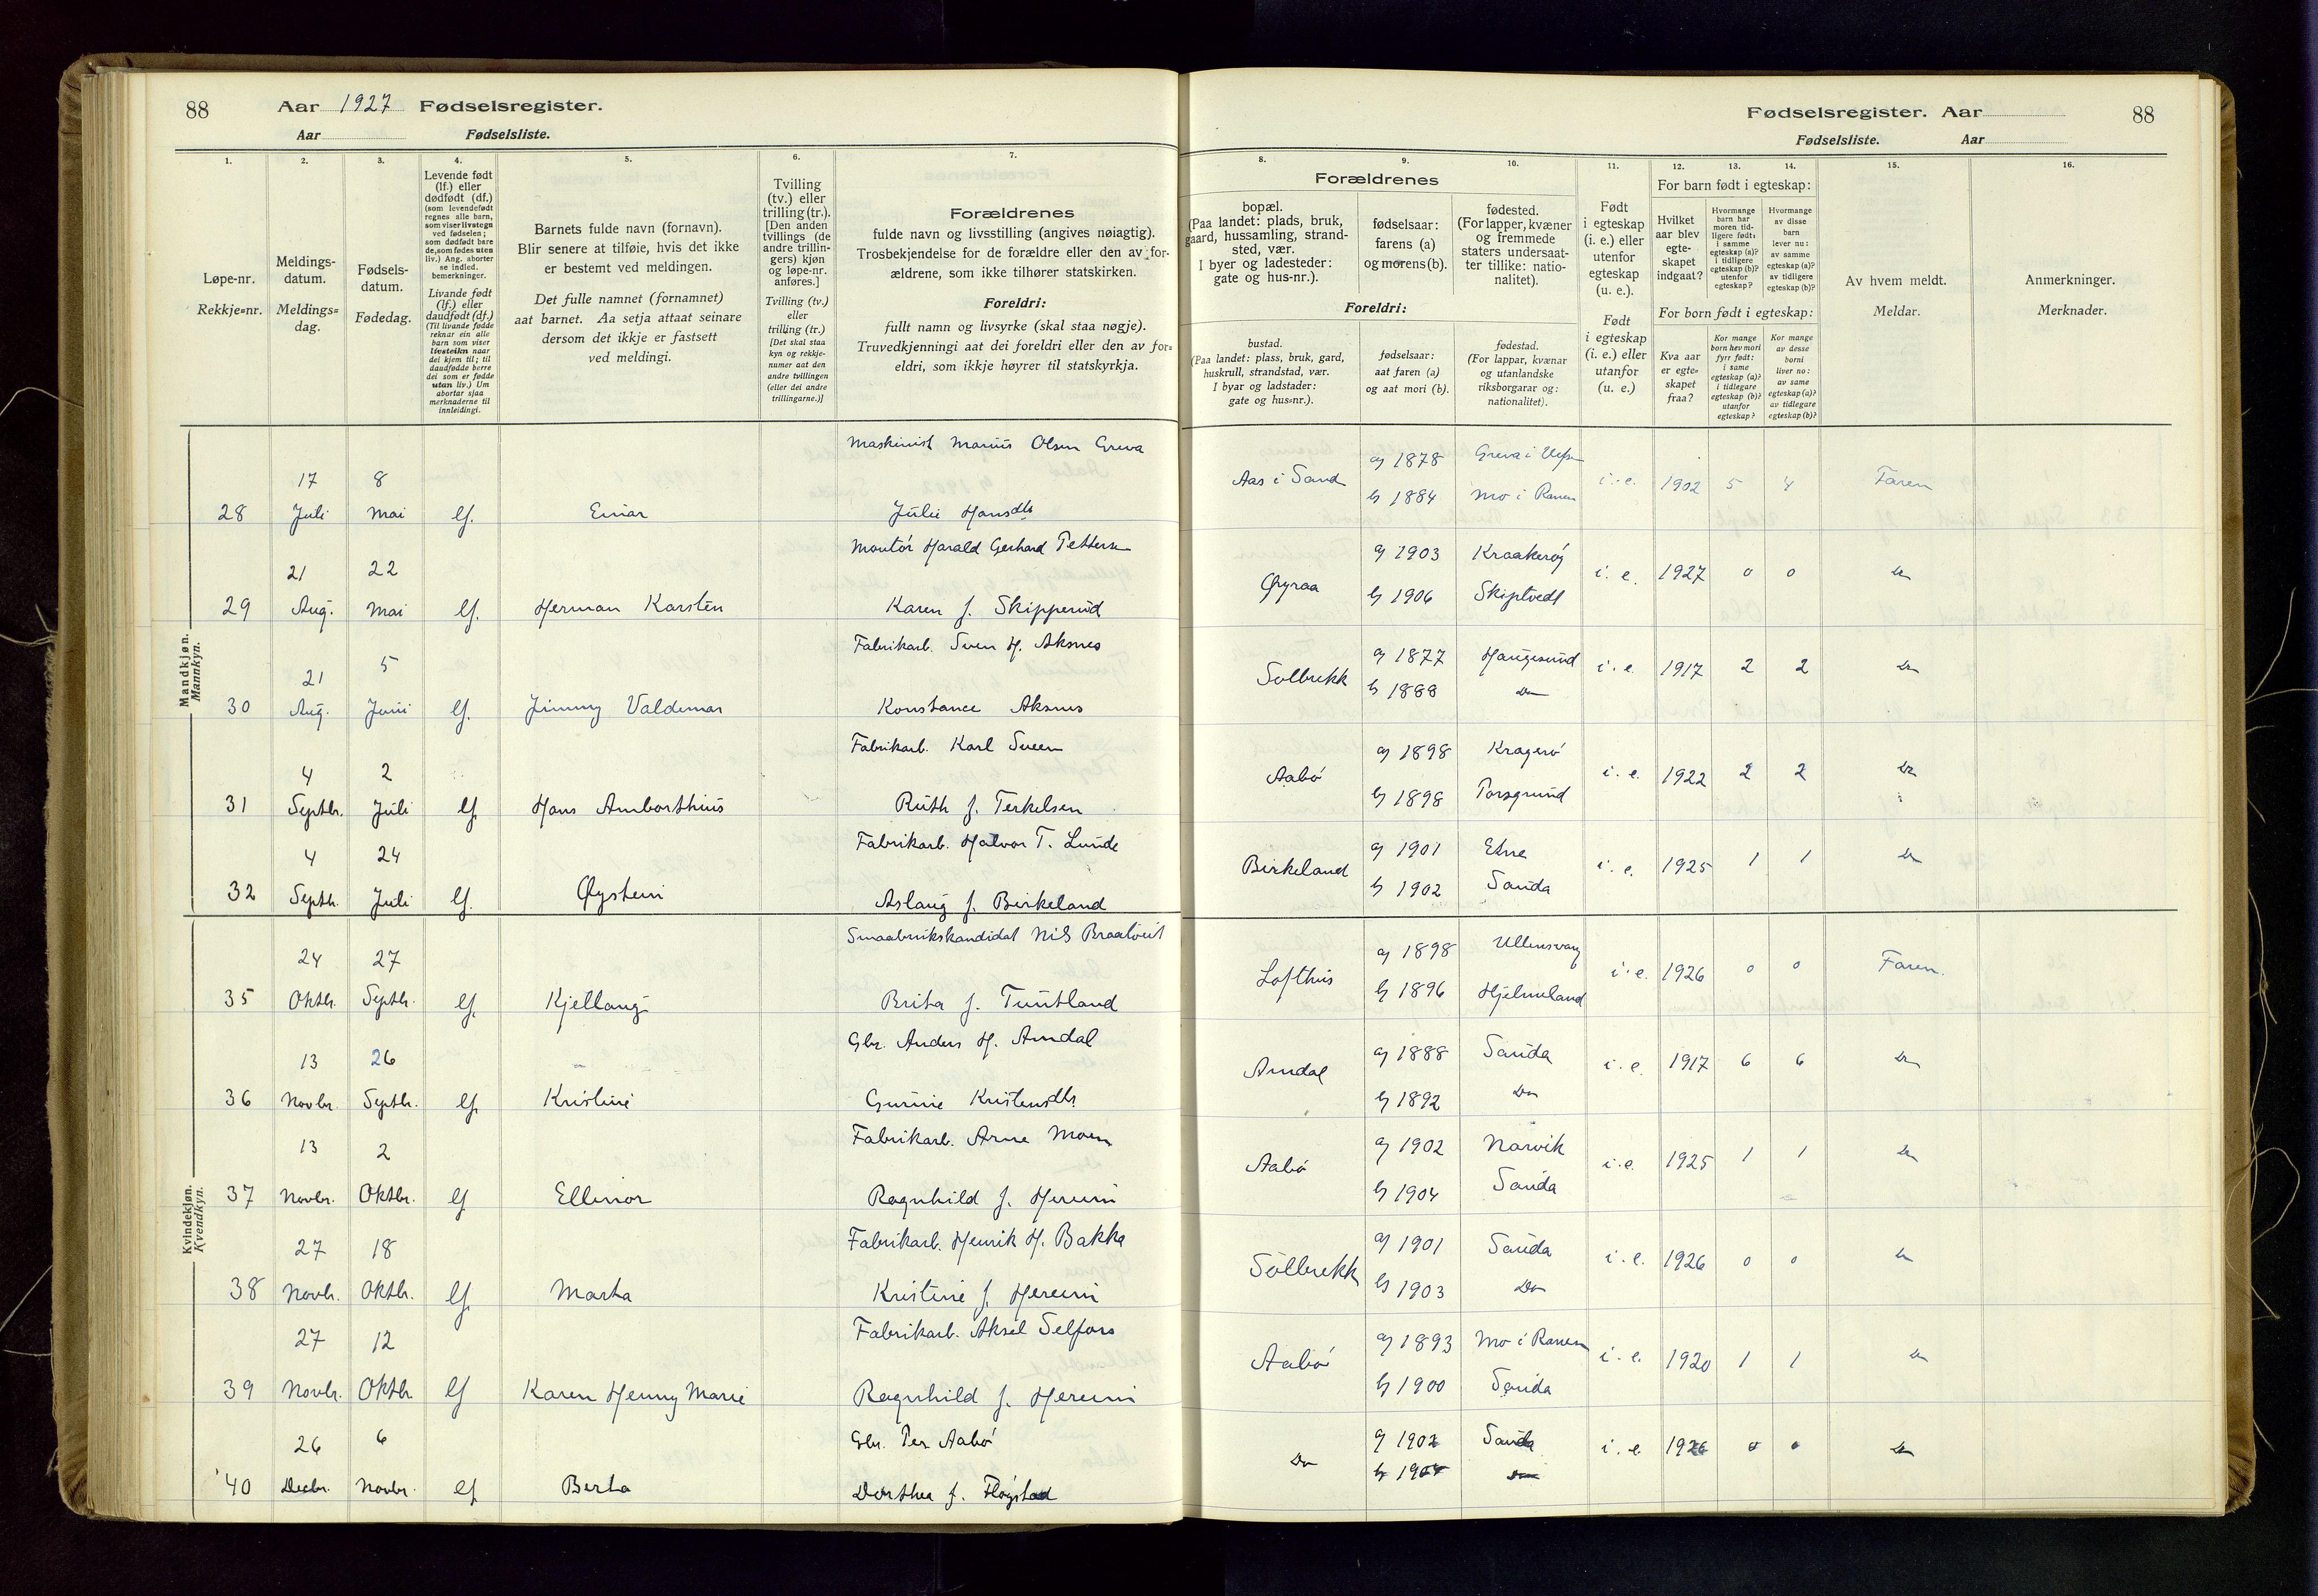 88 Aar 1927 Fødselsregister.
Aar Fødselsliste.
Fødselsregister. Aar 88
Fødselsliste. Aar
1. 2. 3. 4. 5. 6. 7. 8. 9. 10. 11. 12. 13. 14. 15. 16.
Løpe-nr.
Rekkje=nr.
Meldings-
datum.
Meldings=
dag.
Fødsels-
datum.
Fødedag.
Levende født
(lf.) eller
dødfødt (df.)
(som levendefødt
regnes alle barn,
som viser livstegn
ved fødselen;
som dødfødt bare
de, som fødes uten
liv.) Ang. aborter
se indled.
bemerkninger.
Livande født
(lf.) eller
daudfødt (df.)
(Til livande fødde
reknar ein alle
barn som viser
livsteikn naar
dei kjem til; til
daudfødde berre
dei som er fødde
utan liv.) Um
abortar sjaa
merknaderne til
innleidingi.
Barnets fulde navn (fornavn).
Blir senere at tilføie, hvis det ikke
er bestemt ved meldingen.
Det fulle namnet (fornamnet)
aat barnet. Aa setja attaat seinare
dersom det ikkje er fastsett
ved meldingi.
Tvilling
(tv.) eller
trilling (tr.).
[Den anden
tvillings (de
andre trillin-
gers) kjøn
og løpe-nr.
anføres.]
Tvilling (tv.)
eller
trilling (tr.)
[Det skal staa
kyn og rekkje-
numer aat den
andre tvillingen
(eller dei andre
trillingarne.)]
Forældrenes
fulde navn og livsstilling (angives nøiagtig).
Trosbekjendelse for de forældre eller den av for-
ældrene, som ikke tilhører statskirken.
Foreldri:
fullt namn og livsyrke (skal staa nøgje).
Truvedkjenningi aat dei foreldri eller den av for=
eldri, som ikkje høyrer til statskyrkja.
Forældrenes
bopæl.
(Paa landet: plads, bruk,
gaard, hussamling, strand-
sted, vær.
I byer og ladesteder:
gate og hus-nr.).
fødselsaar:
farens (a)
og morens (b).
fødested.
(For lapper, kvæner
og fremmede
staters undersaat-
ter tillike: natio-
nalitet).
Foreldri:
bustad.
(Paa landet: plass, bruk, gard,
huskrull, strandstad, vær.
I byar og ladstader:
gate og hus=nr.).
fødselsaar:
aat faren (a)
og aat mori (b).
fødestad.
(For lappar, kvænar
og utanlandske
riksborgarar og:
nationalitet).
Født
i egteskap
(i. e.) eller
utenfor
egteskap
(u. e.).
Født
i egteskap
(i. e.) eller
utanfor
(u. e.)
For barn født i egteskap:
Hvilket
aar blev
egte-
skapet
indgaat?
Hvormange
barn har
moren tid-
ligere født:
i samme
egteskap (a)?
i tidligere
egteskap (b)?
utenfor
egteskap?
Hvormange
av disse
barn
lever nu:
av samme
egteskap (a)?
av tidligere
egteskap (b)?
For born født i egteskap:
Kva aar
er egte=
skapet
fraa?
Kor mange
born hev mori
fyrr født:
i same
egteskap (a)?
i tidlegare
egteskap (b)?
utanfor
egteskap?
Kor mange
av desse
borni
liver no:
av same
egteskap (a)?
av tidlegare
egteskap (b)?
Av hvem meldt.
Meldar.
Anmerkninger.
Merknader.
Mandkjøn.
Mannkyn.
Maskinist Marius Olsen Greva
17 8 Aas i Sand a) 1878 Greva i i. e. 1902 5 4 Faren
28 Juli Mai lf. Einar Julie Hansdtr b) 1884 Mo i Ranen
Montør Harald Gerhard Pettersen a) 1903 Kraakerøy
21 22 Øyraa i. e. 1927 0 0 Do
29 Aug. Mai lf. Herman Karsten Karen f. Skipperud b) 1906 Skiptvedt
Fabrikarb. Sven H. Aksnes
21 5 Solbrekk a) 1877 Haugesund i. e. 1917 2 2 Do
30 Aug. Juni lf. Jimmy Valdemar Konstance Aksnes b) 1888 Do
Fabrikarb. Karl Sveen a) 1898 Kragerø
4 2 Aabø i. e. 1922 2 2 Do
31 Septbr. Juli lf. Hans Amborthius Ruth f. Terkelsen b) 1898 Porsgrund
Fabrikarb. Halvor T. Lunde a) 1901 Etne
4 24 Birkeland i. e. 1925 1 1 Do
32 Septbr. Juli lf. Øystein Aslaug f. Birkeland b) 1902 Sauda
Kvindekjøn.
Kvendkyn.
Smaabrukskandidat Nils Braatveit a) 1898 Ullensvang
24 27 Lofthus i. e. 1926 0 0 Faren.
35 Oktbr. Septbr. lf. Kjellaug Brita f. Tuntland b) 1896 Hjelmeland
Gbr. Anders H. Amdal a) 1888 Sauda
13 26 Amdal i. e. 1917 6 6 Do
36 Novbr. Septbr. lf. Kristine Gurine Kristensdtr b) 1892 Do
Fabrikarb. Arne Moen a) 1902 Narvik
13 2 Aabø i. e. 1925 1 1 Do
37 Novbr. Oktbr. lf Ellinor Ragnhild f. Hereim b) 1904 Sauda
Fabrikarb. Henrik H. Bakka a) 1901 Sauda
27 18 Solbrekk i. e. 1926 0 0 Do
38 Novbr. Oktbr. lf. Marta Kristine f. Hereim b) 1903 Do
Fabrikarb. Aksel Selfors a) 1893 Mo i Ranen
27 12 Aabø i. e. 1920 1 1 Do
39 Novbr. Oktbr. lf Karen Henny Marie Ragnhild f. Hereim b) 1900 Sauda
Gbr. Per Aabø a) 1902 Sauda
26 6 Do i. e. 1926 0 0 Do
40 Decbr. Novbr. lf. Berta Dorthea f. Fløgstad b) 1904 Do